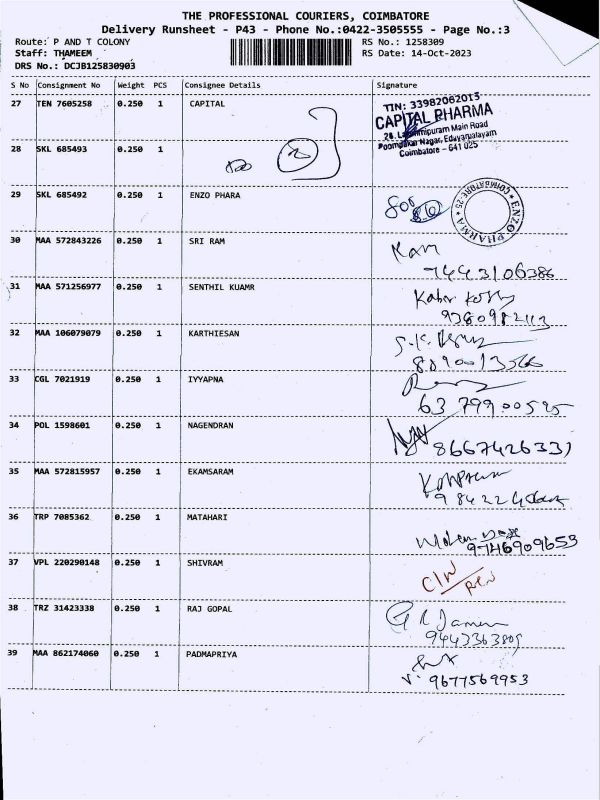 THE PROFESSIONAL COURIERS, COIMBATORE
Delivery Runsheet - P43 - Phone No.:0422-3505555 - Page No.:3
Route: P AND T COLONY
RS No.: 1258309
Staff: THAMEEM
RS Date: 14-Oct-2023
DRS No.: DCJB125830903
S No Consignment No Weight PCS Consignee Details Signature
27 TEN 7605258 0.250 1 CAPITAL
TIN: 33982062015
CAPITAL PHARMA
Main Road
Nagar, Edayarpalayam
Coimbatore - 641 025
28 SKL 685493 0.250 1
29 SKL 685492 0.250 1 ENZO PHARA
ENZO PHARMA * COIMBATORE 25 *
30 MAA 572843226 0.250 1 SRI RAM
7443106386
31 MAA 571256977 0.250 1 SENTHIL KUAMR
9380982113
32 MAA 106079079 0.250 1 KARTHIESAN
33 CGL 7021919 0.250 1 IYYAPNA
34 POL 1598601 0.250 1 NAGENDRAN
35 MAA 572815957 0.250 1 EKAMSARAM
36 TRP 7085362 0.250 1 MATAHARI
9746909653
37 VPL 220290148 0.250 1 SHIVRAM
38 TRZ 31423338 0.250 1 RAJ GOPAL
39 MAA 862174060 0.250 1 PADMAPRIYA
9677569953